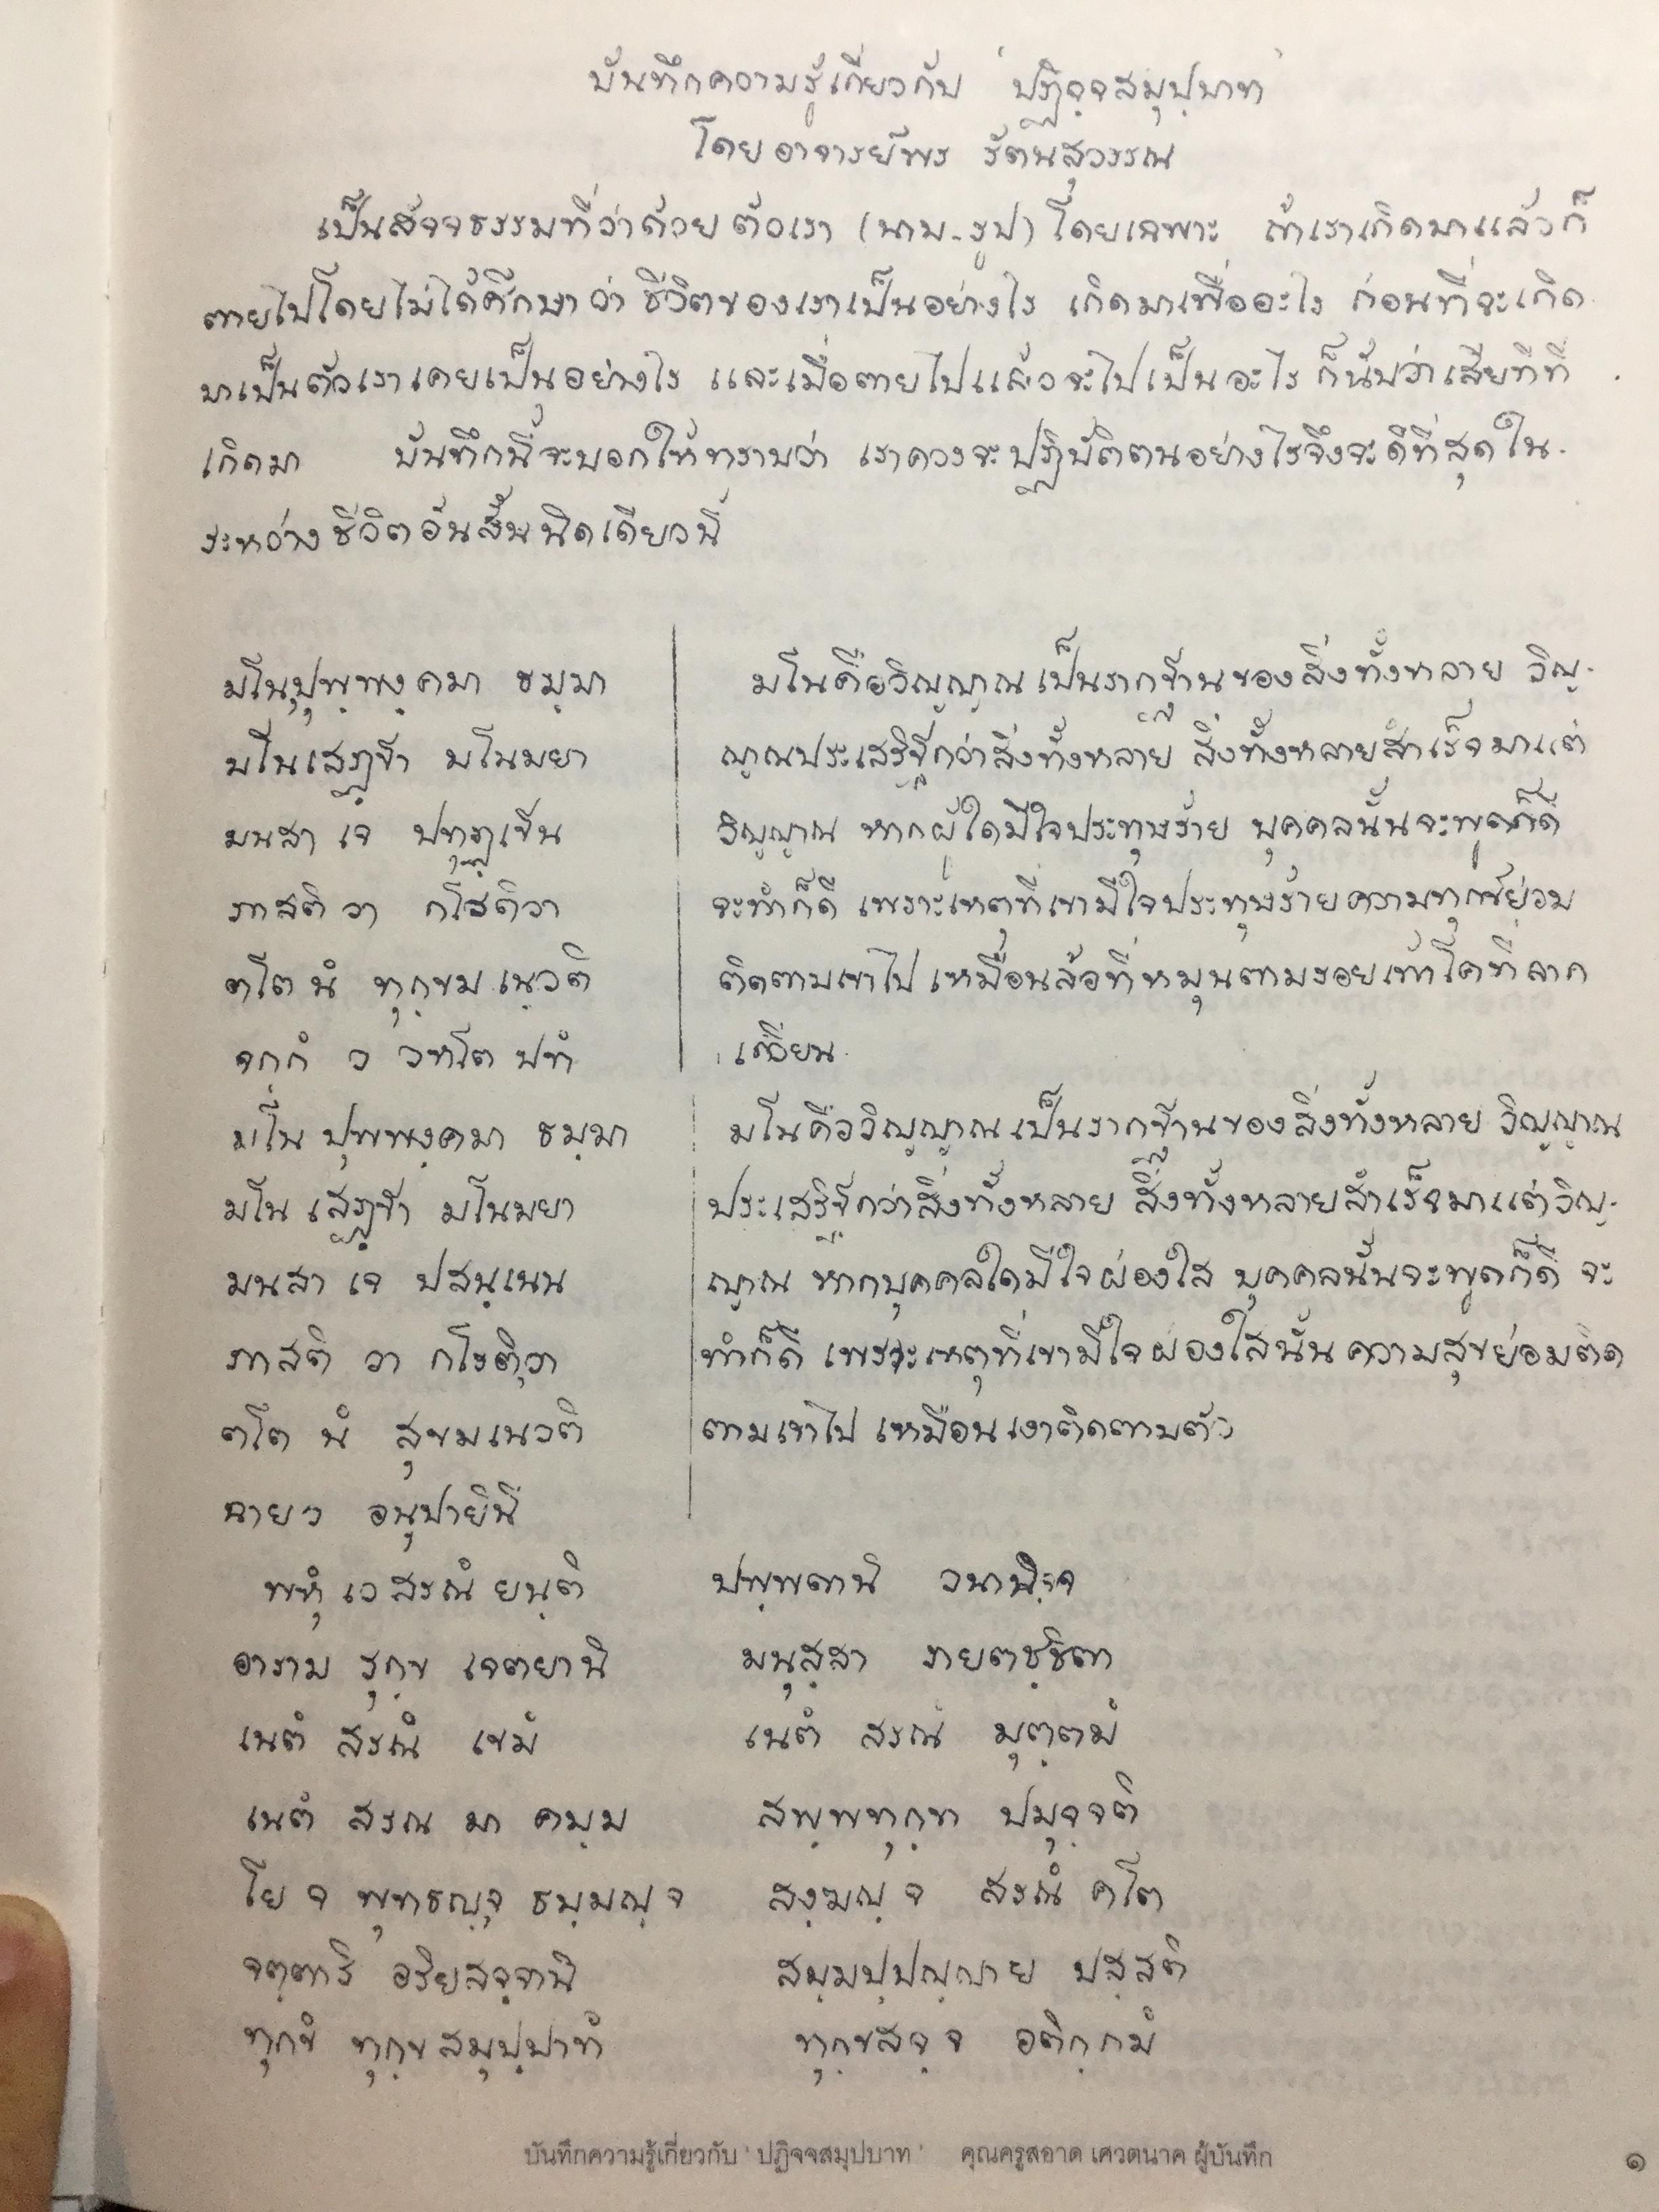 บันทึกความรู้เกี่ยวกับ 'ปฏิจฺจสมุปฺบาท'
โดยอาจารย์พร รัตนสุวรรณ
เป็นสัจจธรรมที่ว่าด้วยตัวเรา (นาม-รูป) โดยเฉพาะ ถ้าเราเกิดมาแล้วก็
ตายไปโดยไม่ได้ศึกษาว่า ชีวิตของเราเป็นอย่างไร เกิดมาเพื่ออะไร ก่อนที่จะเกิด
มาเป็นตัวเราเคยเป็นอย่างไร และเมื่อตายไปแล้วจะไปเป็นอะไร ก็นับว่าเสียทีที่
เกิดมา บันทึกนี้จะบอกให้ทราบว่า เราควรจะปฏิบัติตนอย่างไรจึงจะดีที่สุดใน
ระหว่างชีวิตอันสั้นนิดเดียวนี้
มโนปุพฺพงฺคมา ธมฺมา
มโนเสฏฺฐา มโนมยา
มนสา เจ ปทุฏฺเฐน
ภาสติ วา กโรติวา
ตโต นํ ทุกฺขมเนฺวติ
จกฺกํ ว วหโต ปทํ
มโนคือวิญฺญาณเป็นรากฐานของสิ่งทั้งหลาย วิญฺ-
ญาณประเสริฐกว่าสิ่งทั้งหลาย สิ่งทั้งหลายสำเร็จมาแต่
วิญฺญาณ หากผู้ใดมีใจประทุษร้าย บุคคลนั้นจะพูดก็ดี
จะทำก็ดี เพราะเหตุที่เขามีใจประทุษร้ายความทุกข์ย่อม
ติดตามเขาไป เหมือนล้อที่หมุนตามรอยเท้าโคที่ลาก
เกวียน
มโน ปุพพงฺคมา ธมฺมา
มโน เสฏฺฐา มโนมยา
มนสา เจ ปสนฺเนน
ภาสติ วา กโรติวา
ตโต นํ สุขมเนวติ
ฉายาว อนุปายินี
มโนคือวิญฺญาณเป็นรากฐานของสิ่งทั้งหลาย วิญฺญาณ
ประเสริฐกว่าสิ่งทั้งหลาย สิ่งทั้งหลายสำเร็จมาแต่วิญฺ-
ญาณ หากบุคคลใดมีใจผ่องใส บุคคลนั้นจะพูดก็ดี จะ
ทำก็ดี เพราะเหตุที่เขามีใจผ่องใสนั้น ความสุขย่อมติด
ตามเขาไป เหมือนเงาติดตามตัว
พหุํ เว สรณํ ยนฺติ ปพฺพตานิ วนานิจ
อาราม รุกฺข เจตยานิ มนุสฺสา ภยตชฺชิตา
เนตํ สรณํ เขมํ เนตํ สรณํ มุตฺตมํ
เนตํ สรณ มา คมฺม สพฺพทุกฺขา ปมุจฺจติ
โย จ พุทธญฺจ ธมฺมญฺจ สงฺฆญฺจ สรณํ คโต
จตฺตาริ อริยสจฺจานิ สมฺมปฺปญฺญาย ปสฺสติ
ทุกขํ ทุกฺขสมุปฺปาทํ ทุกฺขสจฺจ อติกฺกมํ
บันทึกความรู้เกี่ยวกับ 'ปฏิจจสมุปบาท' คุณครูสอาด เศวตนาค ผู้บันทึก ๑